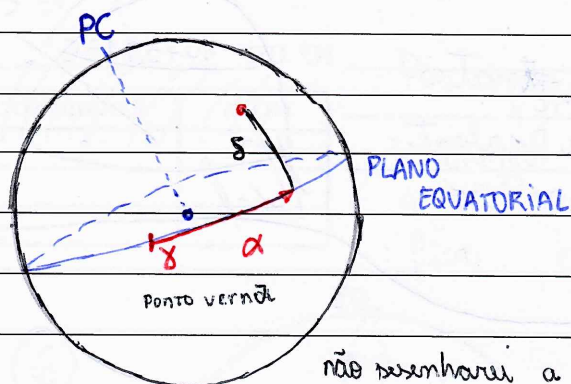 PC
δ
PLANO
EQUATORIAL
γ α
PONTO vernal
não desenharei a